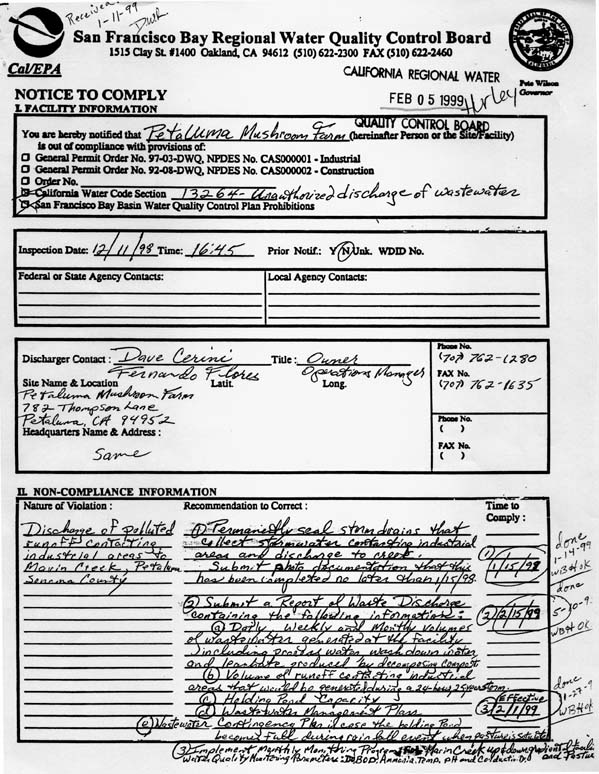 Received
1-11-99
DWR
San Francisco Bay Regional Water Quality Control Board
1515 Clay St. #1400 Oakland, CA 94612 (510) 622-2300 FAX (510) 622-2460
Cal/EPA
CALIFORNIA REGIONAL WATER
FEB 05 1999
Hurley
QUALITY CONTROL BOARD
Pete Wilson
Governor
NOTICE TO COMPLY
I. FACILITY INFORMATION
You are hereby notified that Petaluma Mushroom Farm (hereinafter Person or the Site/Facility)
is out of compliance with provisions of:
General Permit Order No. 97-03-DWQ, NPDES No. CAS000001 - Industrial
General Permit Order No. 92-08-DWQ, NPDES No. CAS000002 - Construction
Order No.
California Water Code Section 13264 - Unauthorized discharge of wastewater
San Francisco Bay Basin Water Quality Control Plan Prohibitions
Inspection Date: 12/11/98 Time: 16:45 Prior Notif.: Y N Unk. WDID No.
Federal or State Agency Contacts: Local Agency Contacts:
Discharger Contact: Dave Cerini Title: Owner
Fernando Flores Operations Manager
Site Name & Location Latit. Long.
Petaluma Mushroom Farm
782 Thompson Lane
Petaluma, CA 94952
Headquarters Name & Address:
Same
Phone No.
(707) 762-1280
FAX No.
(707) 762-1635
Phone No.
( )
FAX No.
( )
II. NON-COMPLIANCE INFORMATION
Nature of Violation: Recommendation to Correct: Time to Comply:
Discharge of polluted
runoff contacting
industrial areas to
Marin Creek, Petaluma
Sonoma County
(1) Permanently seal storm drains that
collect stormwater contacting industrial
areas and discharge to creek.
Submit photo documentation that this
has been completed no later than 1/15/98.
(1) 1/15/98
done
1-14-99
WBH OK
(2) Submit a Report of Waste Discharge
containing the following information:
(a) Daily, Weekly and Monthly Volumes
of wastewater generated at the facility
including process water, wash down water
and leachate produced by decomposing compost
(b) Volume of runoff contacting industrial
areas that would be generated during a 24-hour, 25 year storm
(c) Holding Pond Capacity
(d) Wastewater Management Plan
(e) Wastewater Contingency Plan in case the holding Pond
becomes full during rainfall event when pasture is saturated
(2) 2/15/99
done
5-10-9.
WBH OK
(3) Effective
2/1/99
done
1-27-9
WBH OK
(3) Implement Monthly Monitoring Program for Marin Creek up + downgradient of facility and Pasture
Water Quality Monitoring Parameters: DO, BOD, Ammonia, Temp, pH and Conductivity